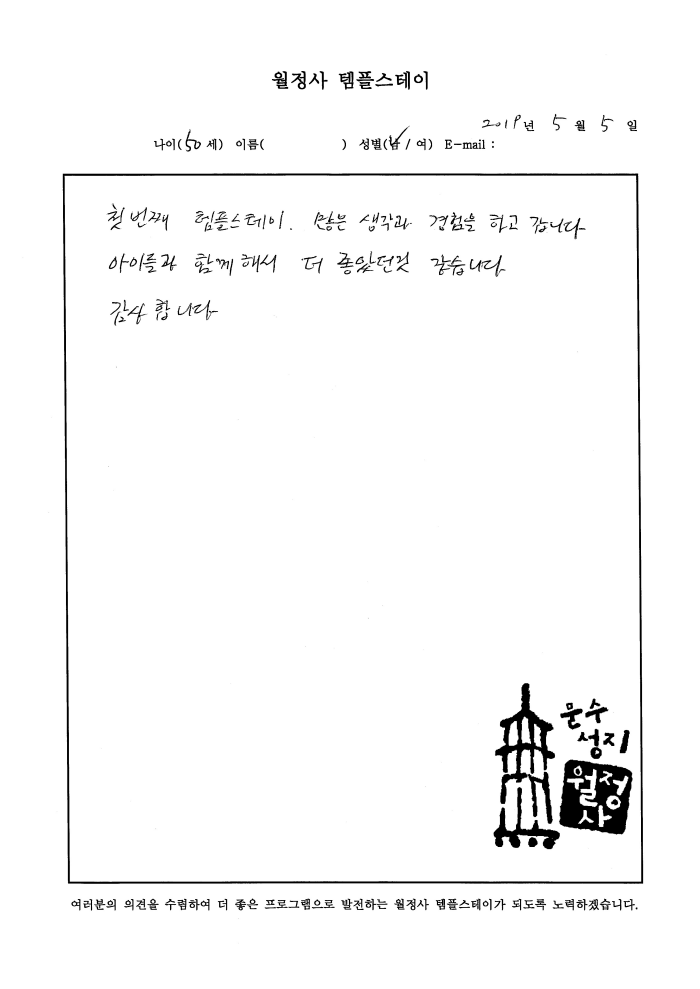 월정사 템플스테이
2019년 5월 5일
나이(50세) 이름( ) 성별(남/여) E-mail :
첫번째 템플스테이. 많은 생각과 경험을 하고 갑니다
아이들과 함께해서 더 좋았던것 같습니다
감사합니다
문수
성지
월정
사
여러분의 의견을 수렴하여 더 좋은 프로그램으로 발전하는 월정사 템플스테이가 되도록 노력하겠습니다.